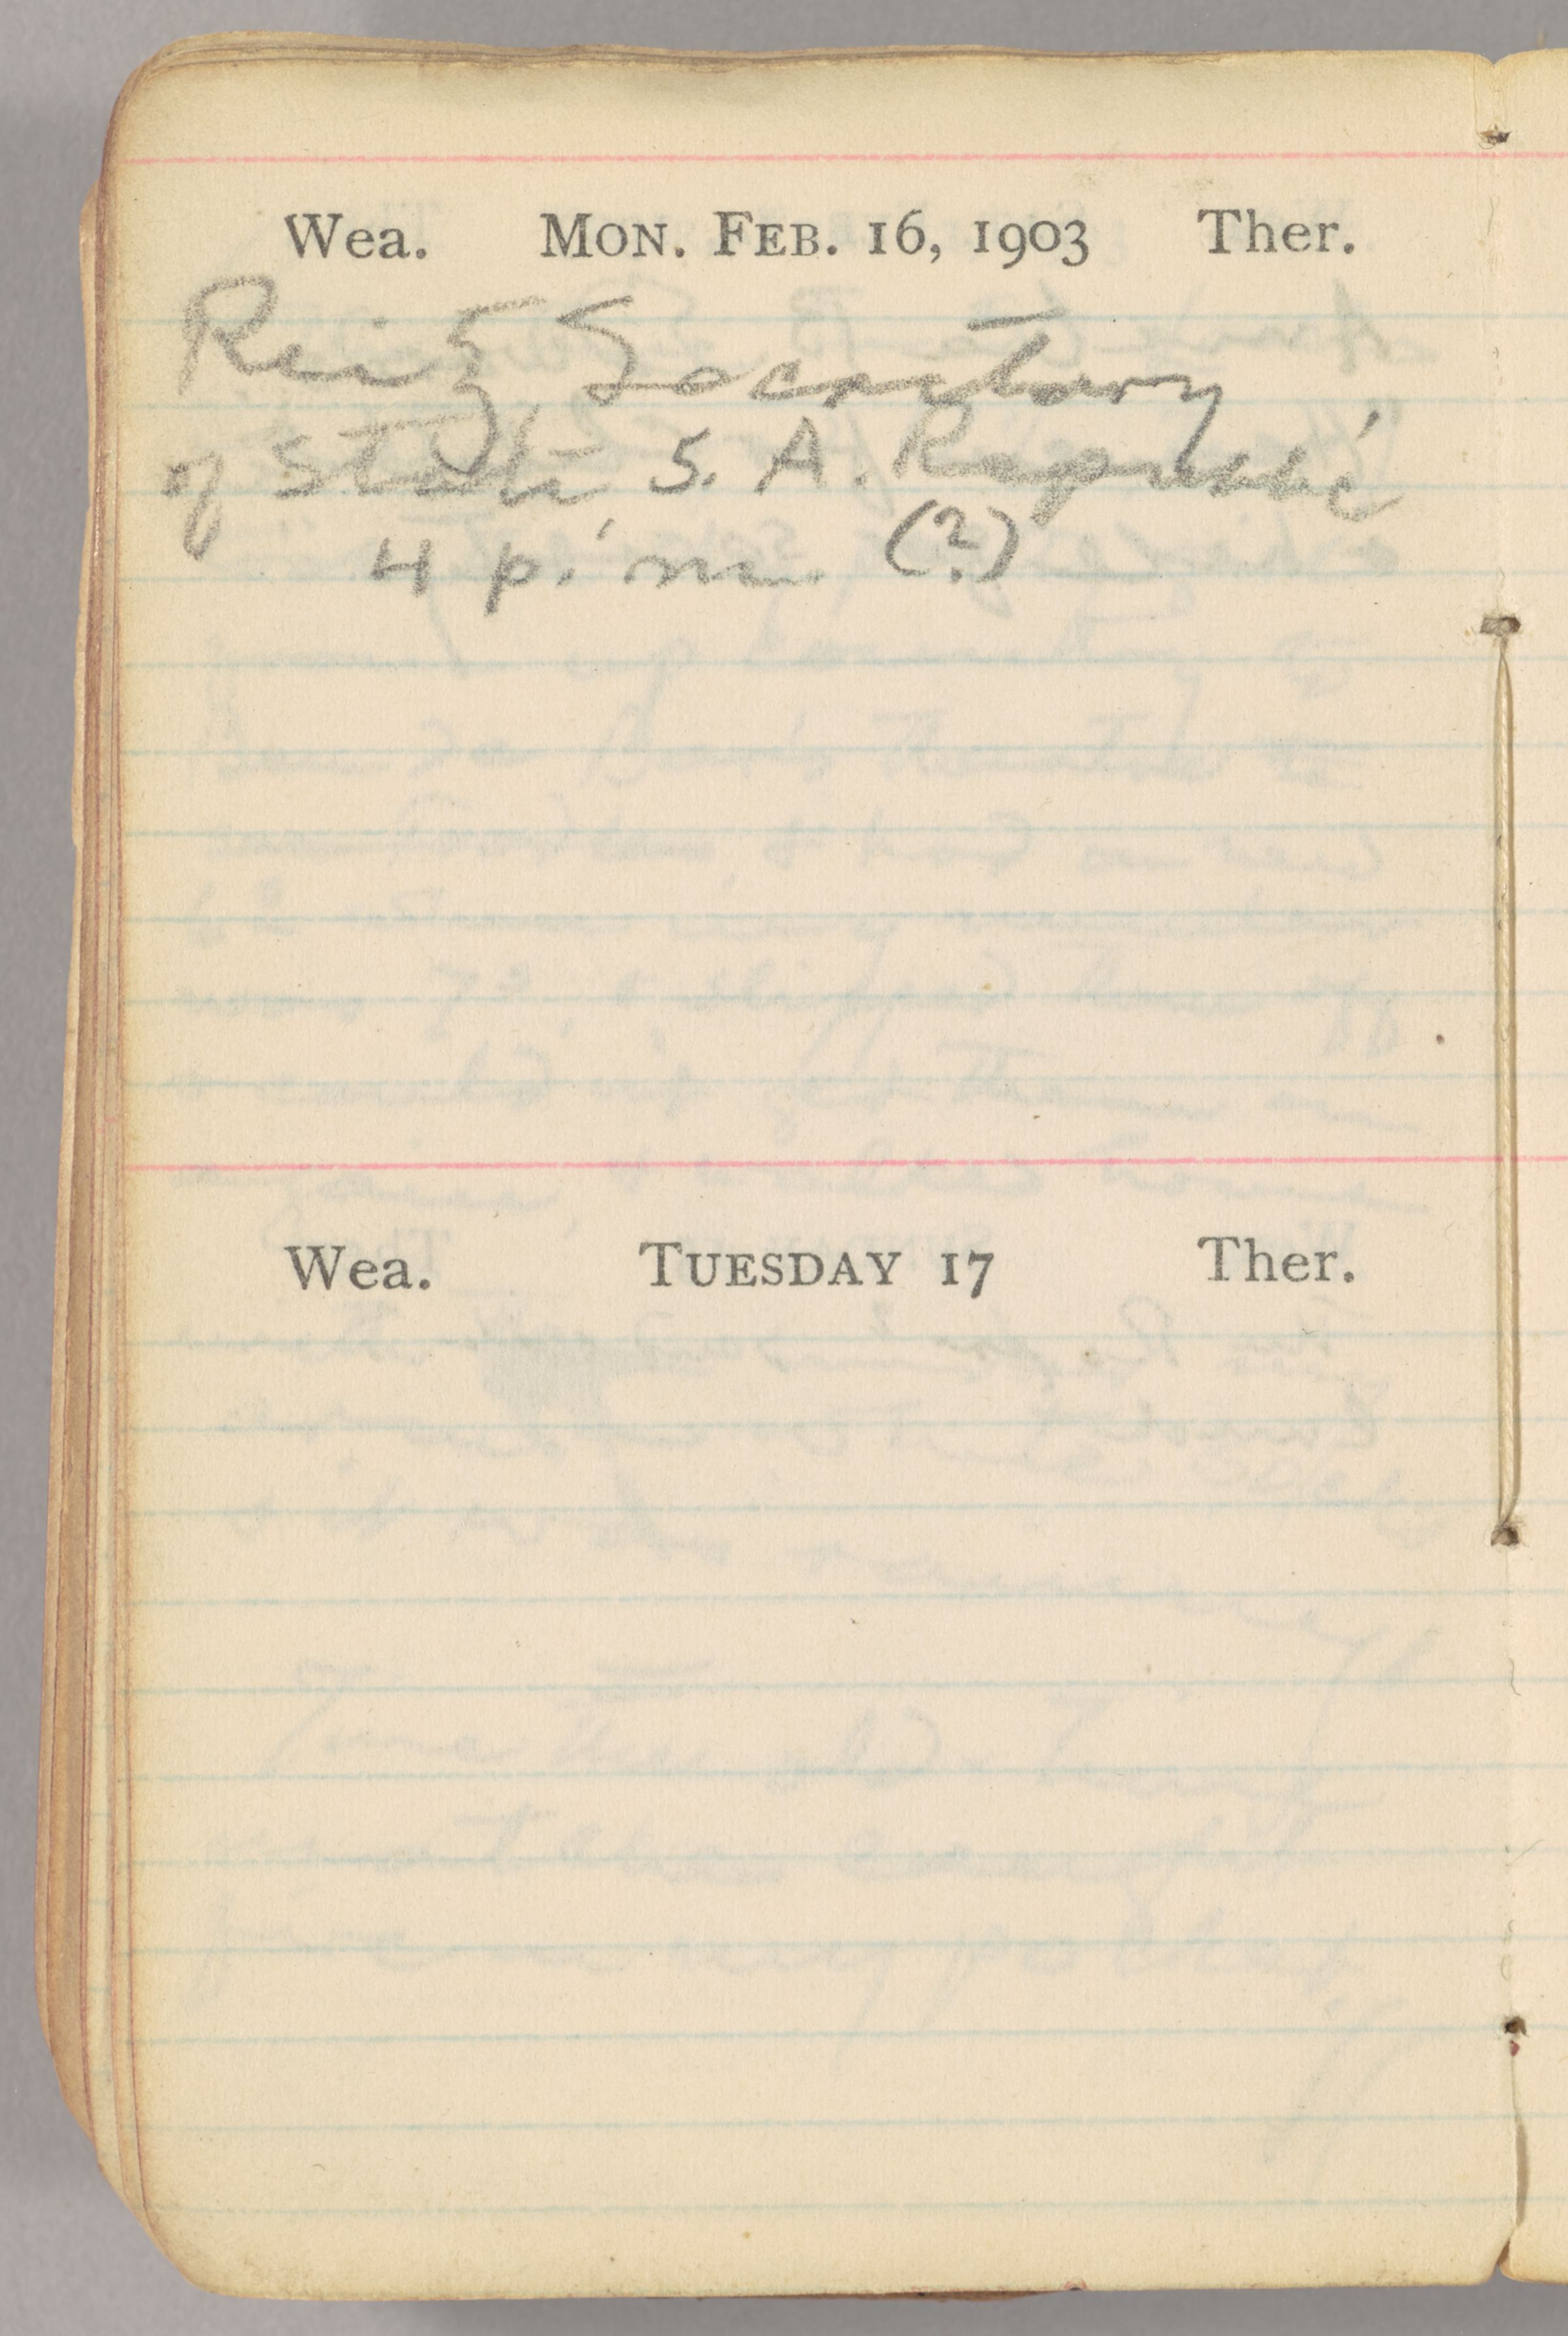 Wea. MON. FEB. 16, 1903 Ther.
Reitz, Secretary
of State, S. A. Republic,
4 p. m. (?)
Wea. TUESDAY 17 Ther.